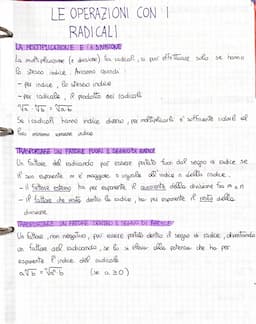 LE OPERAZIONI CON I
RADICALI
LA MOLTIPLICAZIONE E LA DIVISIONE
La moltiplicazione (e divisione) fra radicali, si può effettuare solo se hanno
lo stesso indice. Avremo quindi:
- per indice, lo stesso indice
- per radicale, il prodotto dei radicali
ⁿ√a · ⁿ√b = ⁿ√a·b
Se i radicali hanno indice diverso, per moltiplicarli è sufficiente ridurli al
loro minimo comune indice
TRASPORTARE UN FATTORE FUORI IL SEGNO DI RADICE
Un fattore del radicando può essere portato fuori dal segno di radice se
il suo esponente m è maggiore o uguale all'indice n della radice.
- il fattore esterno ha per esponente il quoziente della divisione tra m e n
- il fattore che resta dentro la radice, ha per esponente il resto della
divisione
TRASPORTARE UN FATTORE DENTRO IL SEGNO DI RADICE
Un fattore, non negativo, può essere portato dentro il segno di radice, diventando
un fattore del radicando, se lo si eleva alla potenza che ha per
esponente l'indice del radicale
a ⁿ√b = ⁿ√aⁿ·b (se a ≥ 0)